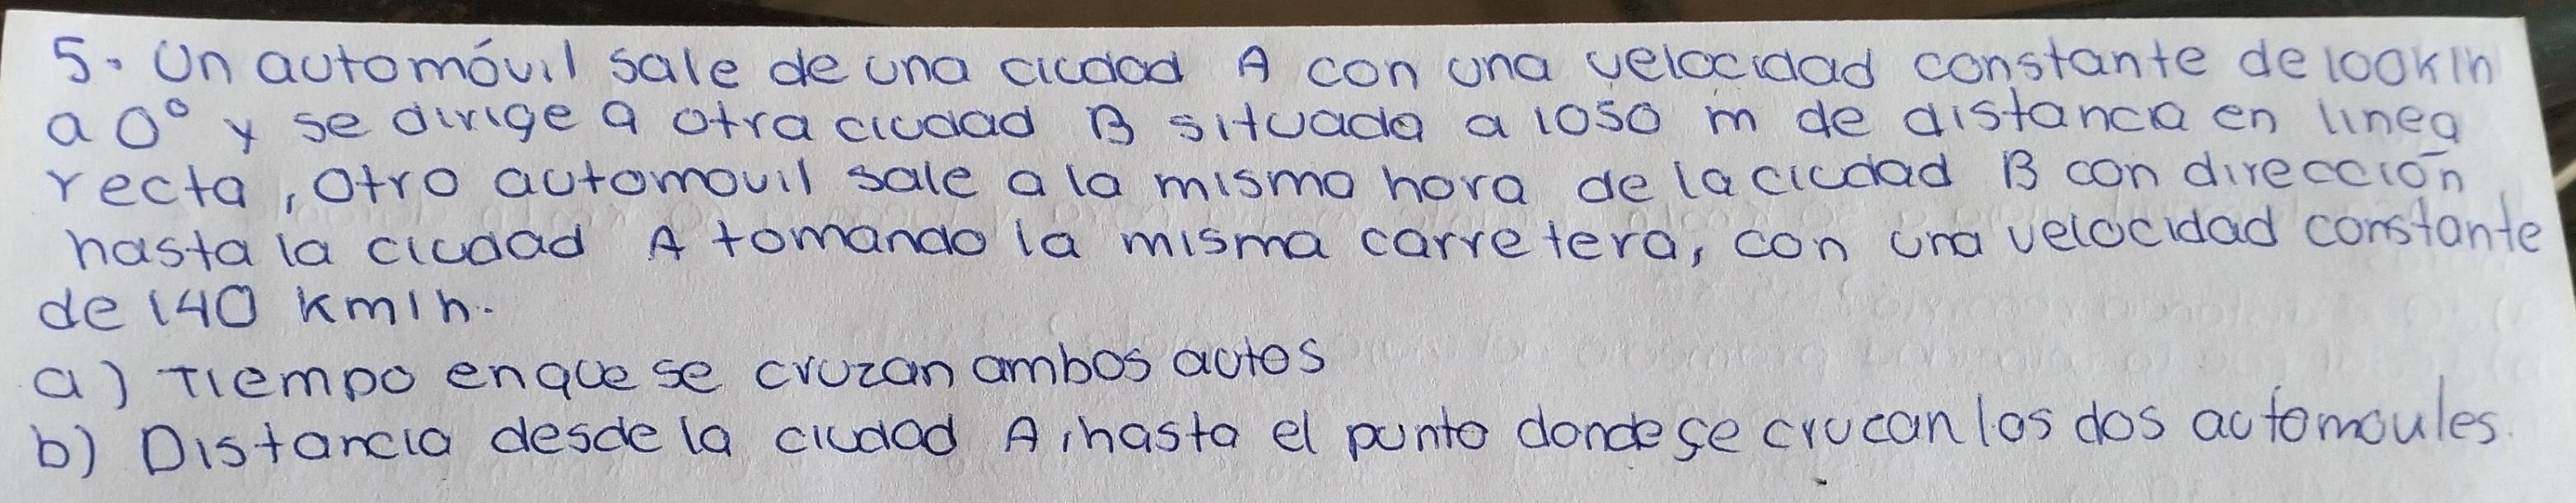 5. Un automóvil sale de una ciudad A con una velocidad constante de 100k/h
a 0° y se dirige a otra ciudad B situada a 1050 m de distancia en linea
recta, otro automovil sale a la misma hora de la ciudad B con dirección
hasta la ciudad A tomando la misma carretera, con una velocidad constante
de 140 km/h.
a) Tiempo en que se cruzan ambos autos
b) Distancia desde la ciudad A, hasta el punto donde se crucan los dos automoules.